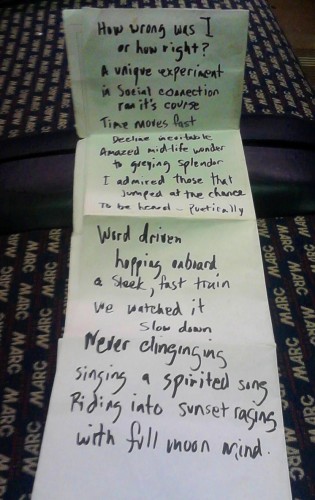 How wrong was I
or how right?
A unique experiment
in Social connection
ran it's course
Time moves fast
Decline inevitable
Amazed mid-life wonder
to greying splendor
I admired those that
jumped at the chance
To be heard - Poetically
Word driven
hopping onboard
a Sleek, fast train
We watched it
Slow down
Never clinginging
singing a spirited song
Riding into sunset raging
with full moon mind.
MARC